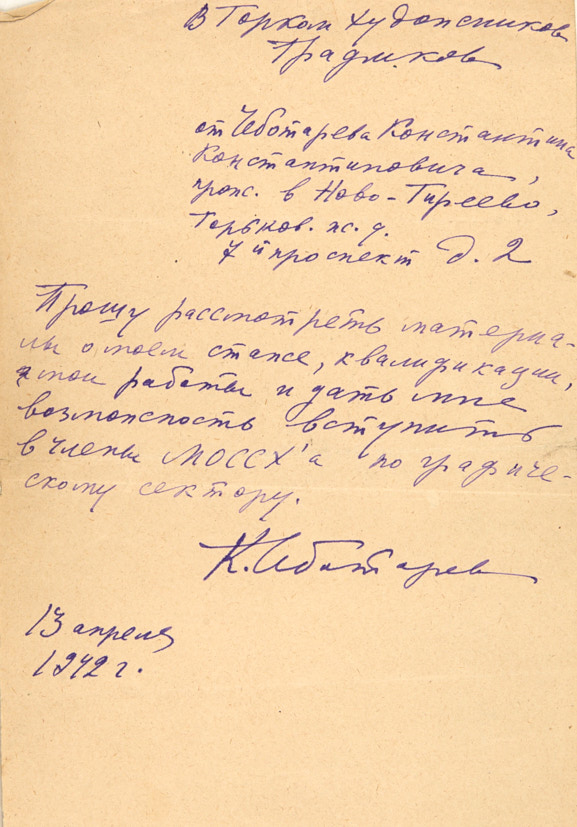 В Горком художников
Графиков
от Чеботарева Константина
Константиновича,
прож. в Ново-Гиреево,
Горьков. ж. д.
7й проспект д. 2
Прошу рассмотреть материа-
лы о моем стаже, квалификации,
мои работы и дать мне
возможность вступить
в члены МОССХ'а по графиче-
скому сектору.
К. Чеботарев
13 апреля
1942 г.